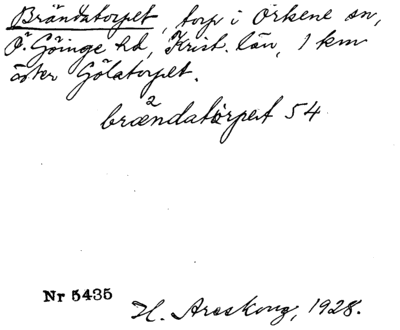 Brändatorpet, torp i Örkene sn,
Ö. Göinge hd, Krist. län, 1 km
öster Gölatorpet.
2
brændatorpet 54
Nr 5435
H. Areskoug, 1928.